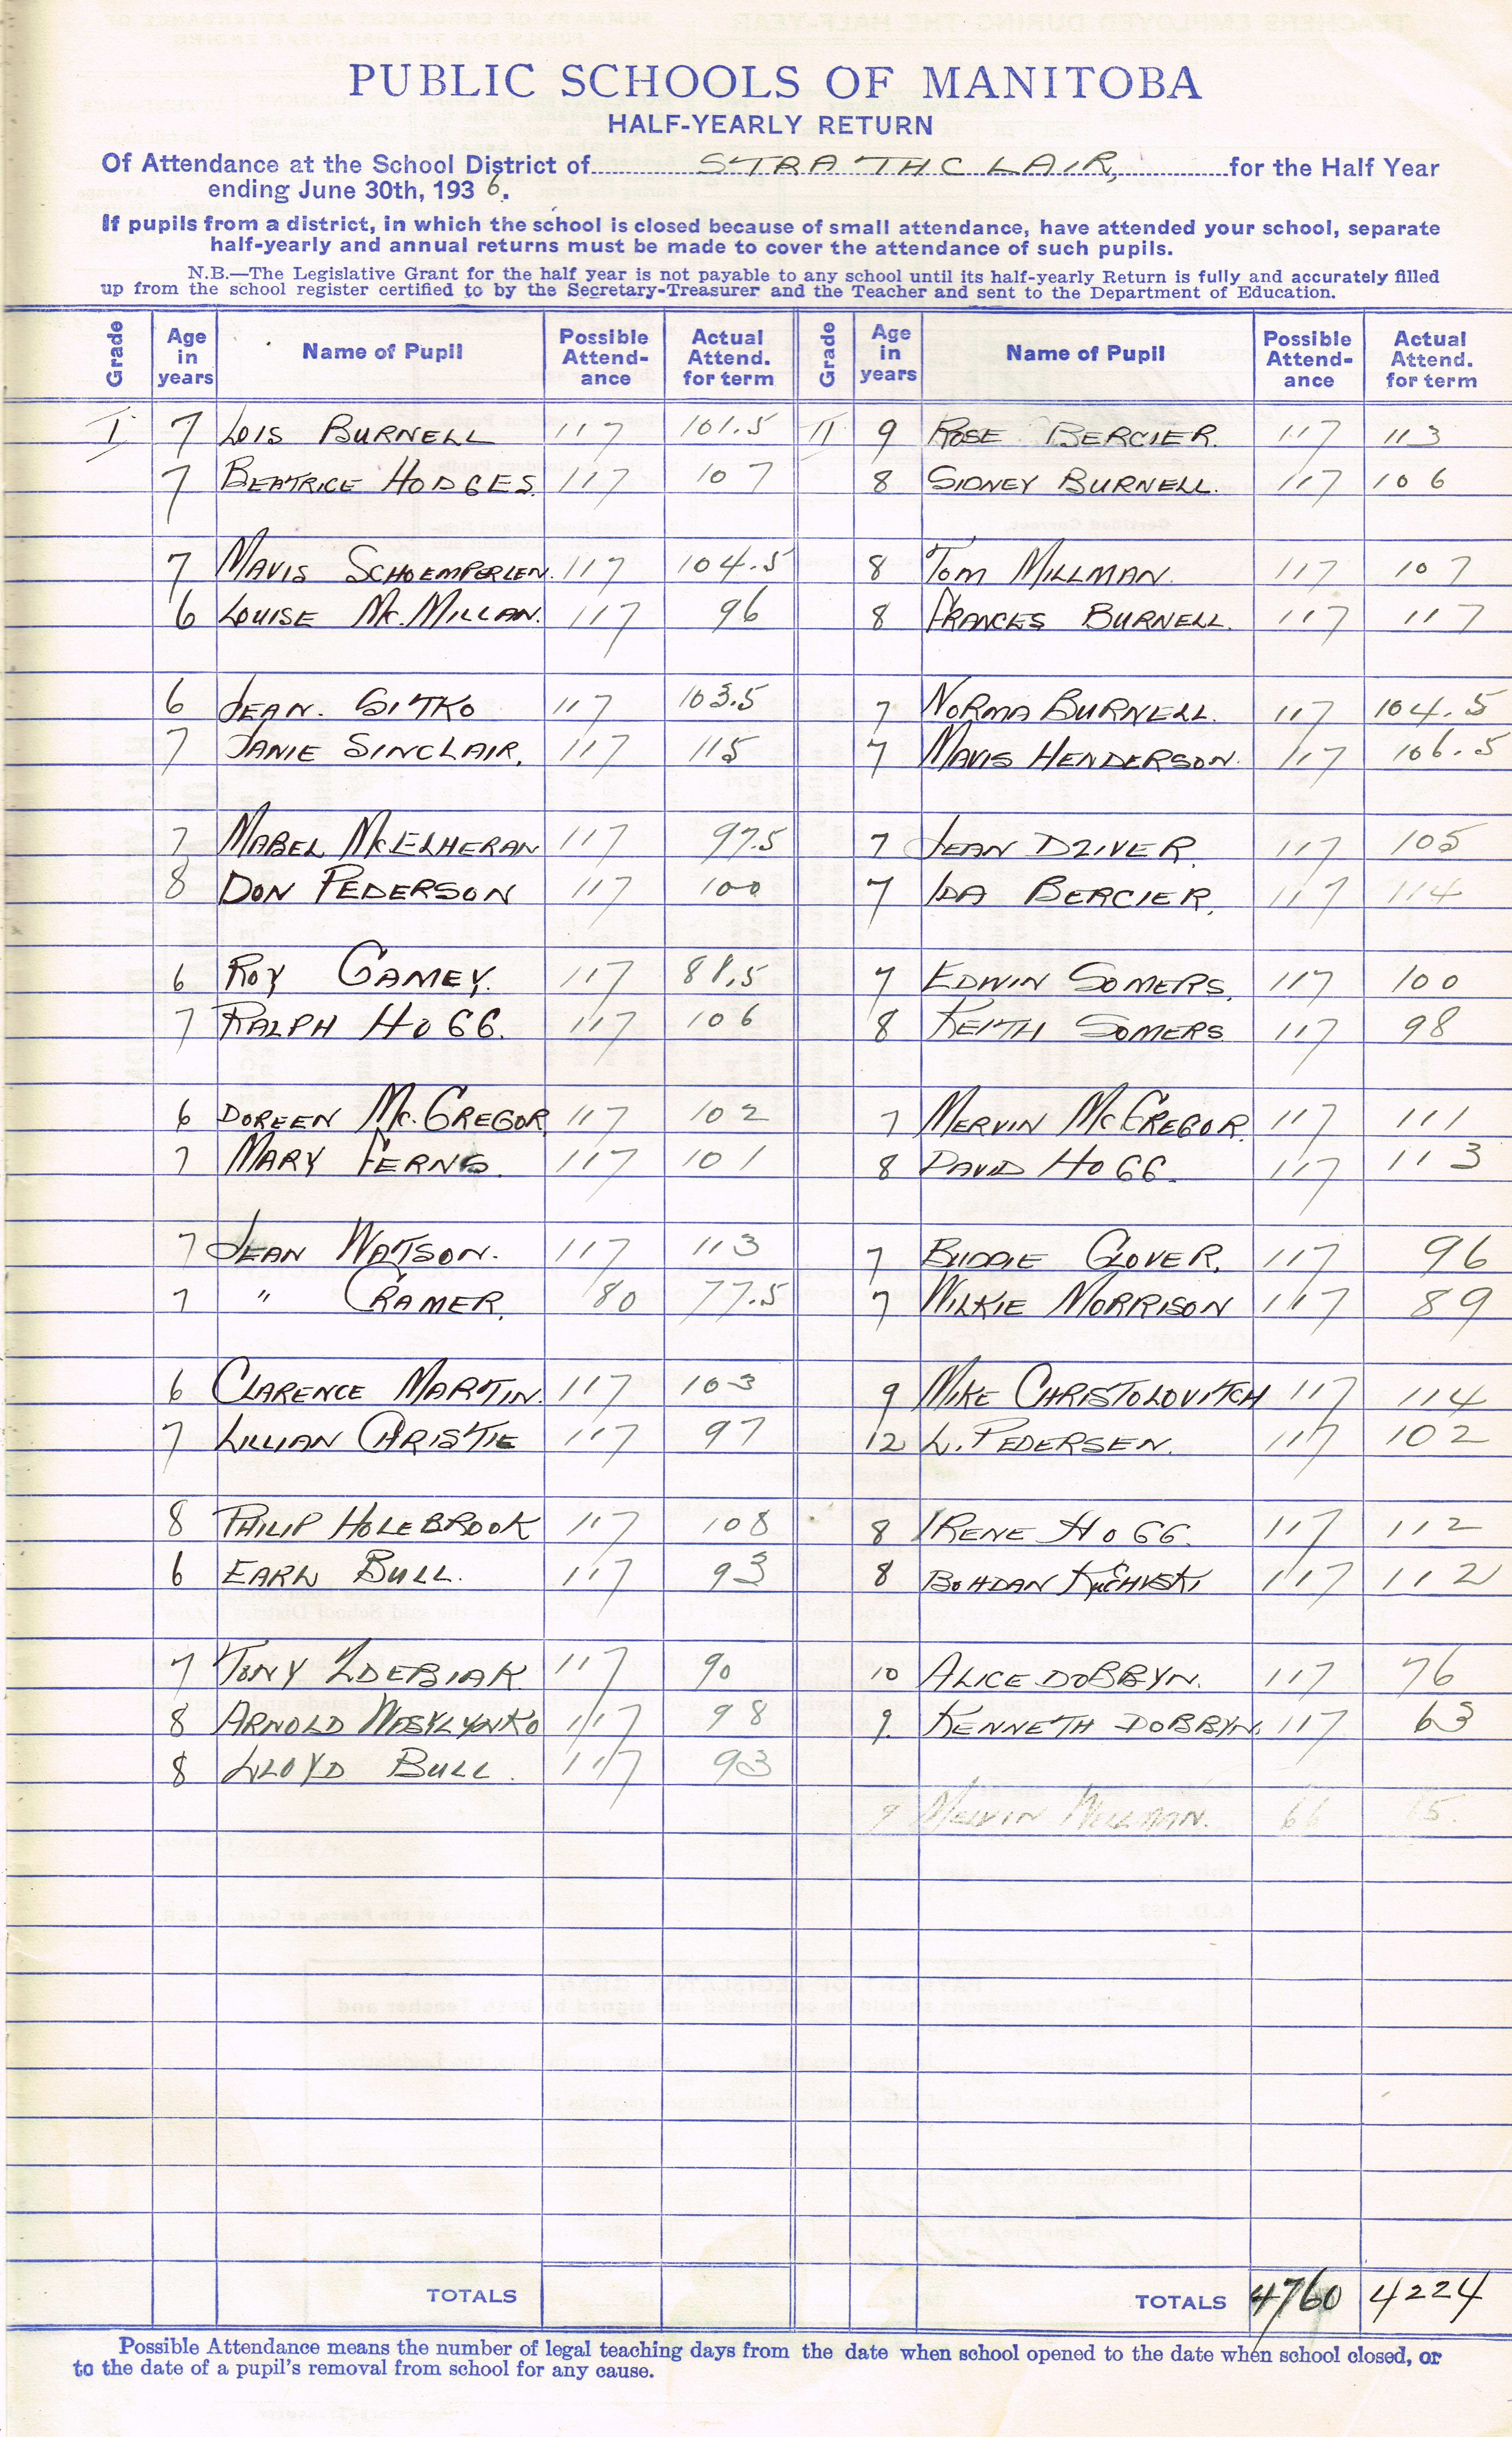 PUBLIC SCHOOLS OF MANITOBA
HALF-YEARLY RETURN
Of Attendance at the School District of STRATHCLAIR, for the Half Year
ending June 30th, 1936.
If pupils from a district, in which the school is closed because of small attendance, have attended your school, separate
half-yearly and annual returns must be made to cover the attendance of such pupils.
N.B.—The Legislative Grant for the half year is not payable to any school until its half-yearly Return is fully and accurately filled
up from the school register certified to by the Secretary-Treasurer and the Teacher and sent to the Department of Education.
Grade Age in years Name of Pupil Possible Attend-ance Actual Attend. for term Grade Age in years Name of Pupil Possible Attend-ance Actual Attend. for term
I 7 LOIS BURNELL 117 101.5 II 9 ROSE BERCIER. 117 113
7 BEATRICE HODGES. 117 107 8 SIDNEY BURNELL. 117 106
7 MAVIS SCHOEMPERLEN. 117 104.5 8 TOM MILLMAN. 117 107
6 LOUISE Mc.MILLAN. 117 96 8 FRANCES BURNELL. 117 117
6 JEAN. GITKO 117 103.5 7 NORMA BURNELL. 117 104.5
7 JANIE SINCLAIR. 117 115 7 MAVIS HENDERSON. 117 106.5
7 MABEL McELHERAN 117 97.5 7 JEAN DZIVER. 117 105
8 DON PEDERSON 117 100 7 IDA BERCIER. 117 114
6 ROY GAMEY. 117 88.5 7 EDWIN SOMERS. 117 100
7 RALPH HOGG. 117 106 8 KEITH SOMERS 117 98
6 DOREEN Mc.GREGOR. 117 102 7 MERVIN McGREGOR. 117 111
7 MARY FERNS. 117 101 8 DAVID HOGG. 117 113
7 JEAN WATSON. 117 113 7 BUDDIE GLOVER. 117 96
7 " CRAMER. 80 77.5 7 WILKIE MORRISON 117 89
6 CLARENCE MARTIN. 117 103 9 MIKE CHRISTOLOVITCH 117 114
7 LILLIAN CHRISTIE 117 97 12 L. PEDERSEN. 117 102
8 PHILIP HOLEBROOK 117 108 8 IRENE HOGG. 117 112
6 EARL BULL. 117 93 8 BOHDAN 117 112
7 TONY ZDEBIAK. 117 90 10 ALICE DOBBYN. 117 76
8 ARNOLD WASYLYNKO 117 98 9. KENNETH DOBBYN. 117 63
8 LLOYD BULL. 117 93
9 MELVIN MILLMAN. 66 15.
TOTALS TOTALS 4760 4224
Possible Attendance means the number of legal teaching days from the date when school opened to the date when school closed, or
to the date of a pupil's removal from school for any cause.